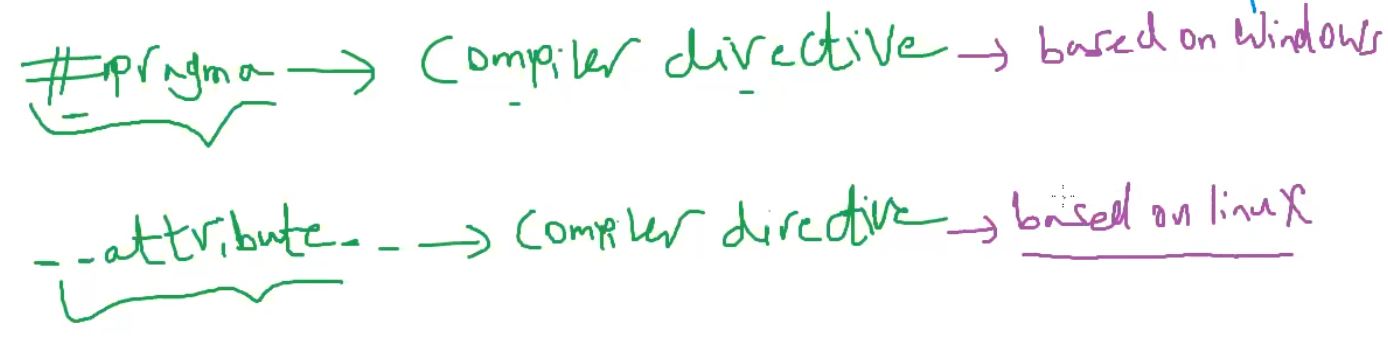 #pragma → Compiler directive → based on Windows
__attribute__ → Compiler directive → based on linux